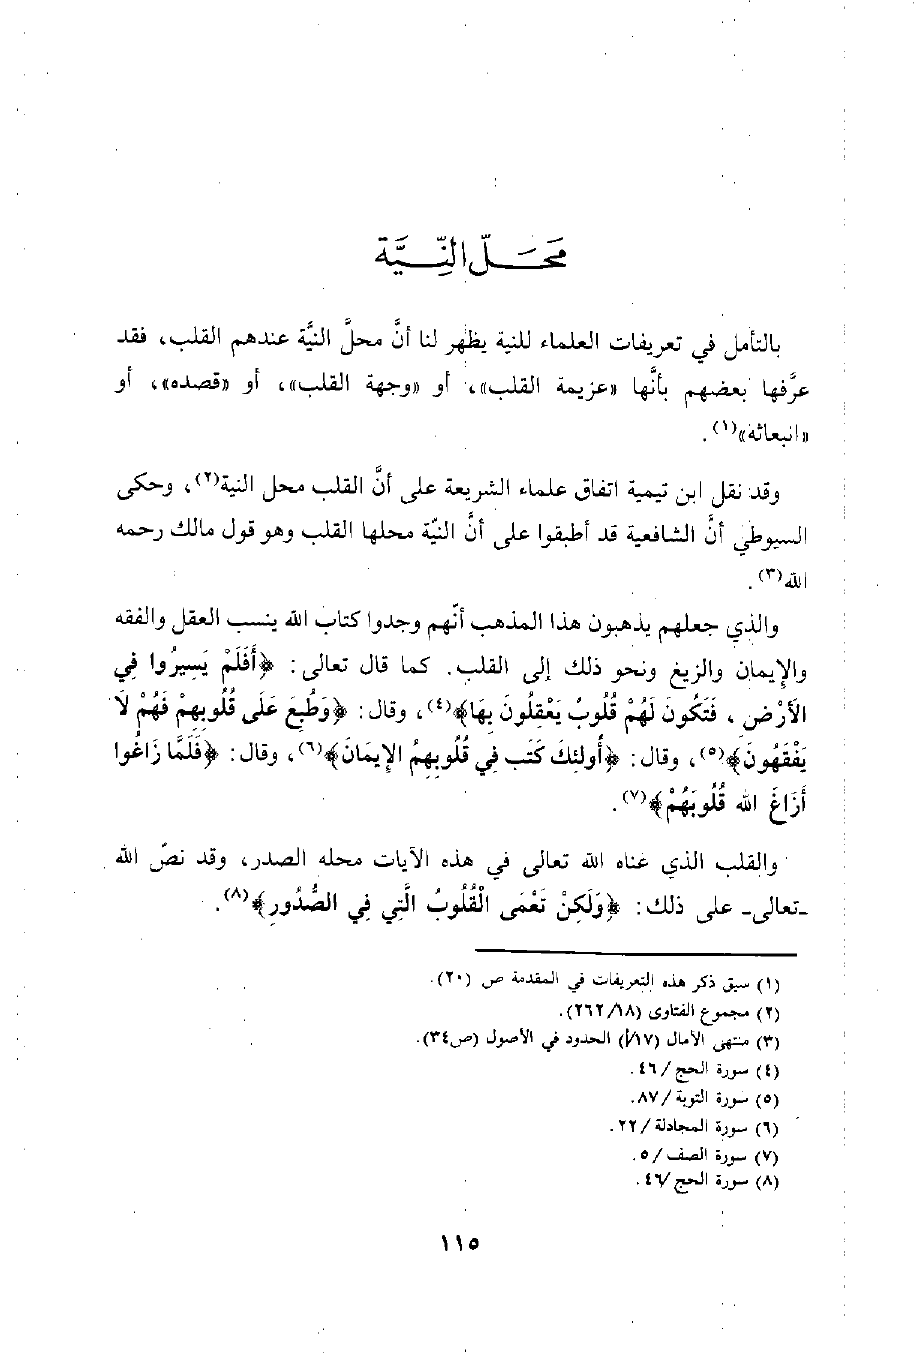 محل النِّيَّة
بالتأمل في تعريفات العلماء للنية يظهر لنا أنَّ محلَّ النيَّة عندهم القلب، فقد
عرَّفها بعضهم بأنَّها «عزيمة القلب»، أو «وجهة القلب»، أو «قصده»، أو
«انبعاثه»(١).
وقد نقل ابن تيمية اتفاق علماء الشريعة على أنَّ القلب محل النية(٢)، وحكى
السيوطي أنَّ الشافعية قد أطبقوا على أنَّ النيّة محلها القلب وهو قول مالك رحمه
الله(٣).
والذي جعلهم يذهبون هذا المذهب أنّهم وجدوا كتاب الله ينسب العقل والفقه
والإيمان والزيغ ونحو ذلك إلى القلب. كما قال تعالى: ﴿أَفَلَمْ يَسِيرُوا فِي
الأَرْضِ، فَتَكُونَ لَهُمْ قُلُوبٌ يَعْقِلُونَ بِهَا﴾(٤)، وقال: ﴿وَطُبِعَ عَلَى قُلُوبِهِمْ فَهُمْ لَا
يَفْقَهُونَ﴾(٥)، وقال: ﴿أُولئِكَ كَتَب فِي قُلُوبِهِمُ الإِيمَانَ﴾(٦)، وقال: ﴿فَلَمَّا زَاغُوا
أَزَاغَ الله قُلُوبَهُمْ﴾(٧).
والقلب الذي عناه الله تعالى في هذه الآيات محله الصدر، وقد نصّ الله
-تعالى- على ذلك: ﴿وَلَكِنْ تَعْمَى الْقُلُوبُ الَّتِي فِي الصُّدُورِ﴾(٨).
(١) سبق ذكر هذه التعريفات في المقدمة ص (٢٠).
(٢) مجموع الفتاوى (١٨/ ٢٦٢).
(٣) منتهى الآمال (١٧/أ) الحدود في الأصول (ص٣٤).
(٤) سورة الحج /٤٦.
(٥) سورة التوبة /٨٧.
(٦) سورة المجادلة /٢٢.
(٧) سورة الصف /٥.
(٨) سورة الحج /٤٦.
١١٥